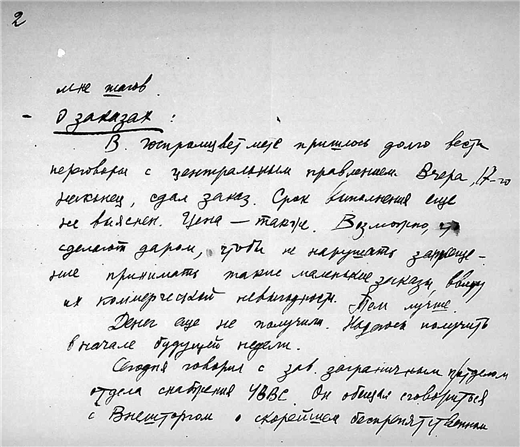 2
мне шагов.
О заказах:
В Госпромцветмете пришлось долго вести
переговоры с центральным правлением. Вчера, 17-го
наконец, сдал заказ. Срок выполнения еще
не выяснен. Цена — также. Возможно,
сделают даром, чтобы не нарушать запреще-
ние принимать такие маленькие заказы, ввиду
их коммерческой невыгодности. Тем лучше.
Денег еще не получили. Надеюсь получить
в начале будущей недели.
Сегодня говорил с зав. заграничным
отдела снабжения УВВС. Он обещал сговориться
с Внешторгом о скорейшем беспрепятственном